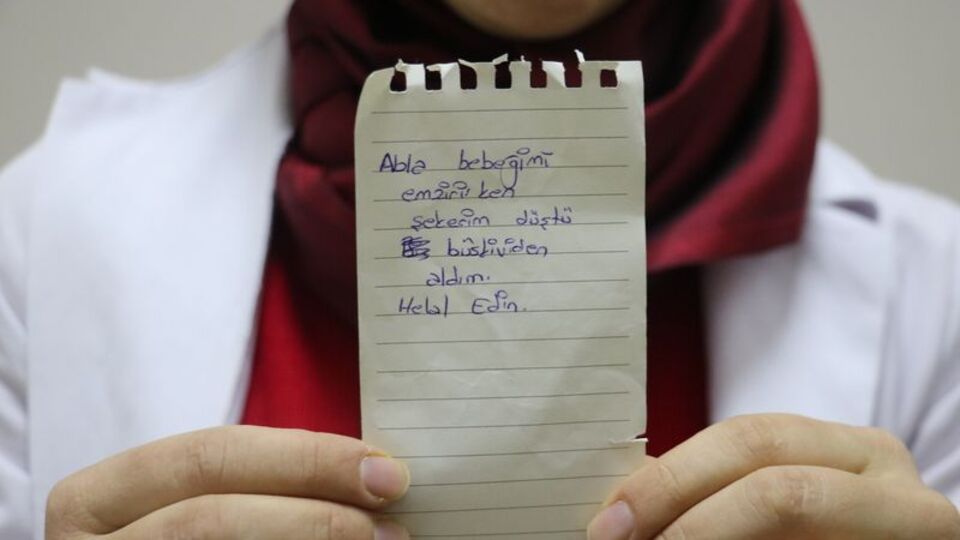 Abla bebeğimi
emzirirken
şekerim düştü
büsküviden
aldım.
Helal Edin.